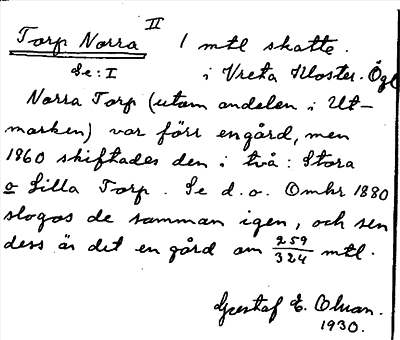 II
Torp Norra 1 mtl skatte.
Se: I i Vreta Kloster. Ögl
Norra Torp (utom andelen i Ut-
marken) var förr en gård, men
1860 skiftades den i två: Stora
o Lilla Torp. Se d.o. Omkr 1880
slogos de samman igen, och sen
dess är det en gård om 259/324 mtl.
Gustaf E. Olsson.
1930.